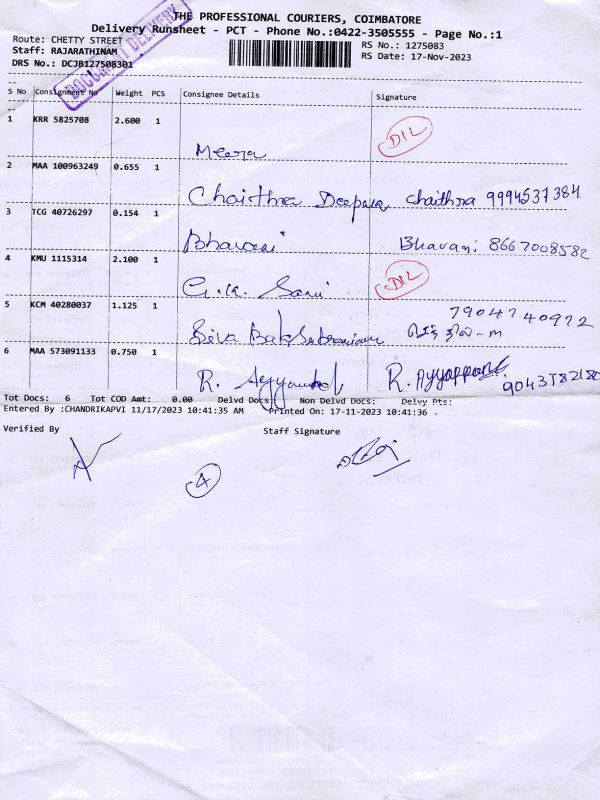 THE PROFESSIONAL COURIERS, COIMBATORE
Delivery Runsheet - PCT - Phone No.:0422-3505555 - Page No.:1
Route: CHETTY STREET
RS No.: 1275083
Staff: RAJARATHINAM
RS Date: 17-Nov-2023
DRS No.: DCJB127508301
DOCUMENT DELIVERY
S No Consignment No Weight PCS Consignee Details Signature
1 KRR 5825708 2.600 1 DIL
Meera
2 MAA 100963249 0.655 1
Chaithra Deepara chaithra 9994537384
3 TCG 40726297 0.154 1
Bhavani Bhavani 8667008582
4 KMU 1115314 2.100 1 DIL
G.K. Sami
5 KCM 40280037 1.125 1 7904740972
Siva
6 MAA 573091133 0.750 1
R. R. Ayyappan
Tot Docs: 6 Tot COD Amt: 0.00 Delvd Docs: Non Delvd Docs: Delvy Pts:
Entered By :CHANDRIKAPVI 11/17/2023 10:41:35 AM Printed On: 17-11-2023 10:41:36 .
Verified By Staff Signature
4